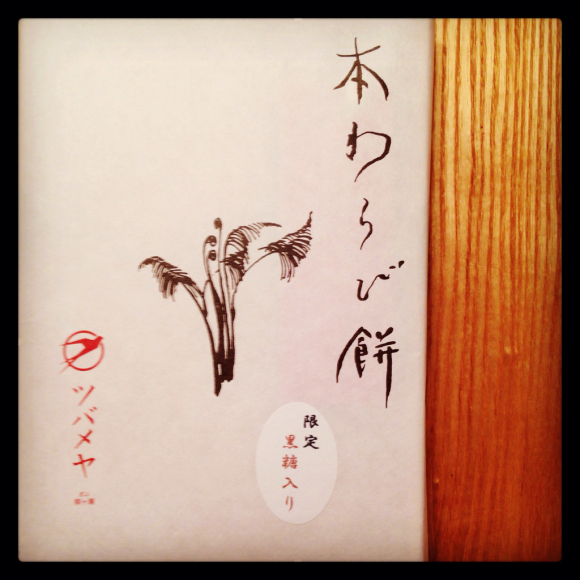 本わらび餅
限定
黒糖入り
ツバメヤ